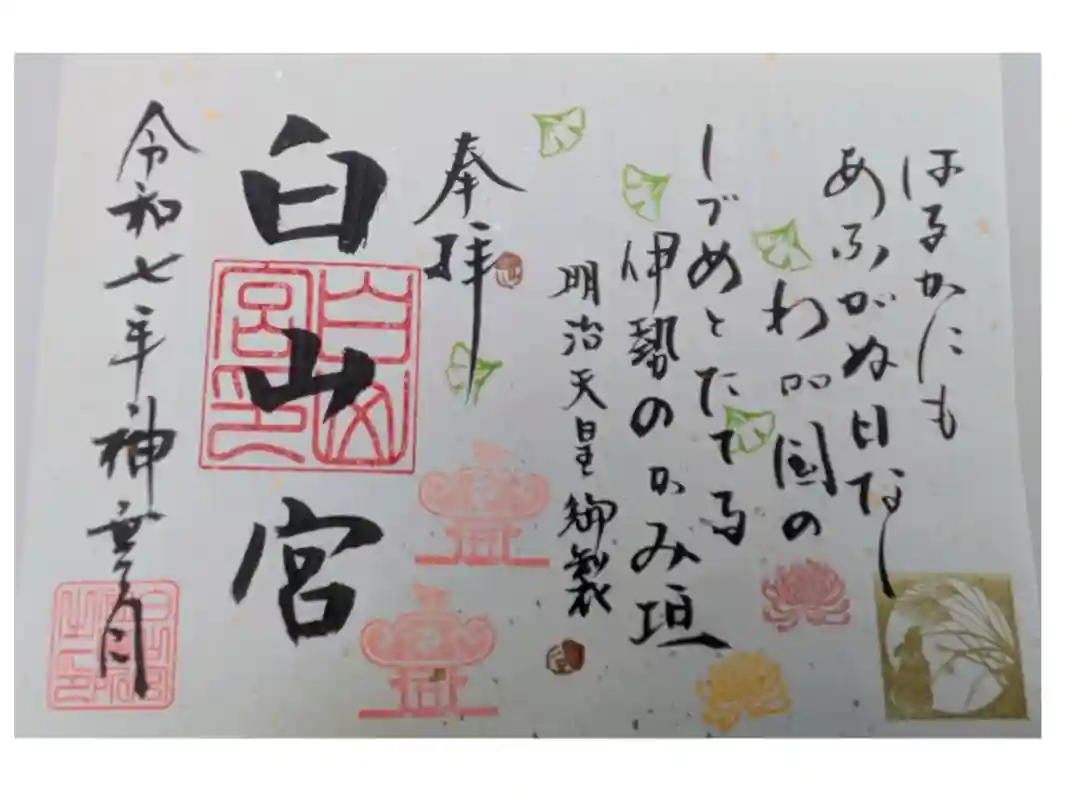 はるかにも
あふがぬ日なし
わが国の
しづめとたてる
伊勢のかみ垣
明治天皇御製
奉拝
白山宮
白山宮印
令和七年神無月